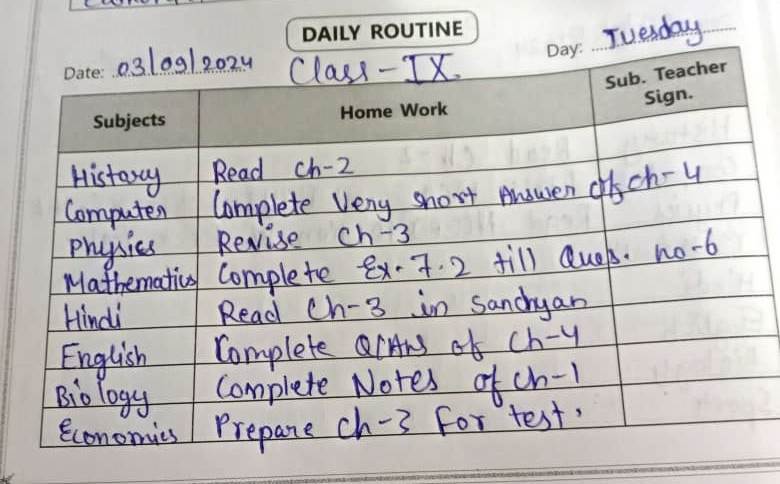 DAILY ROUTINE
Date: 03/09/2024 Class - IX. Day: Tuesday
Subjects Home Work Sub. Teacher Sign.
History Read ch-2
Computer Complete Very short Answer of ch-4
Physics Revise Ch-3
Mathematics Complete Ex-7.2 till Ques. no-6
Hindi Read Ch-3 in Sanchyan
English Complete Q/Ans of Ch-4
Biology Complete Notes of ch-1
Economics Prepare ch-3 For test.